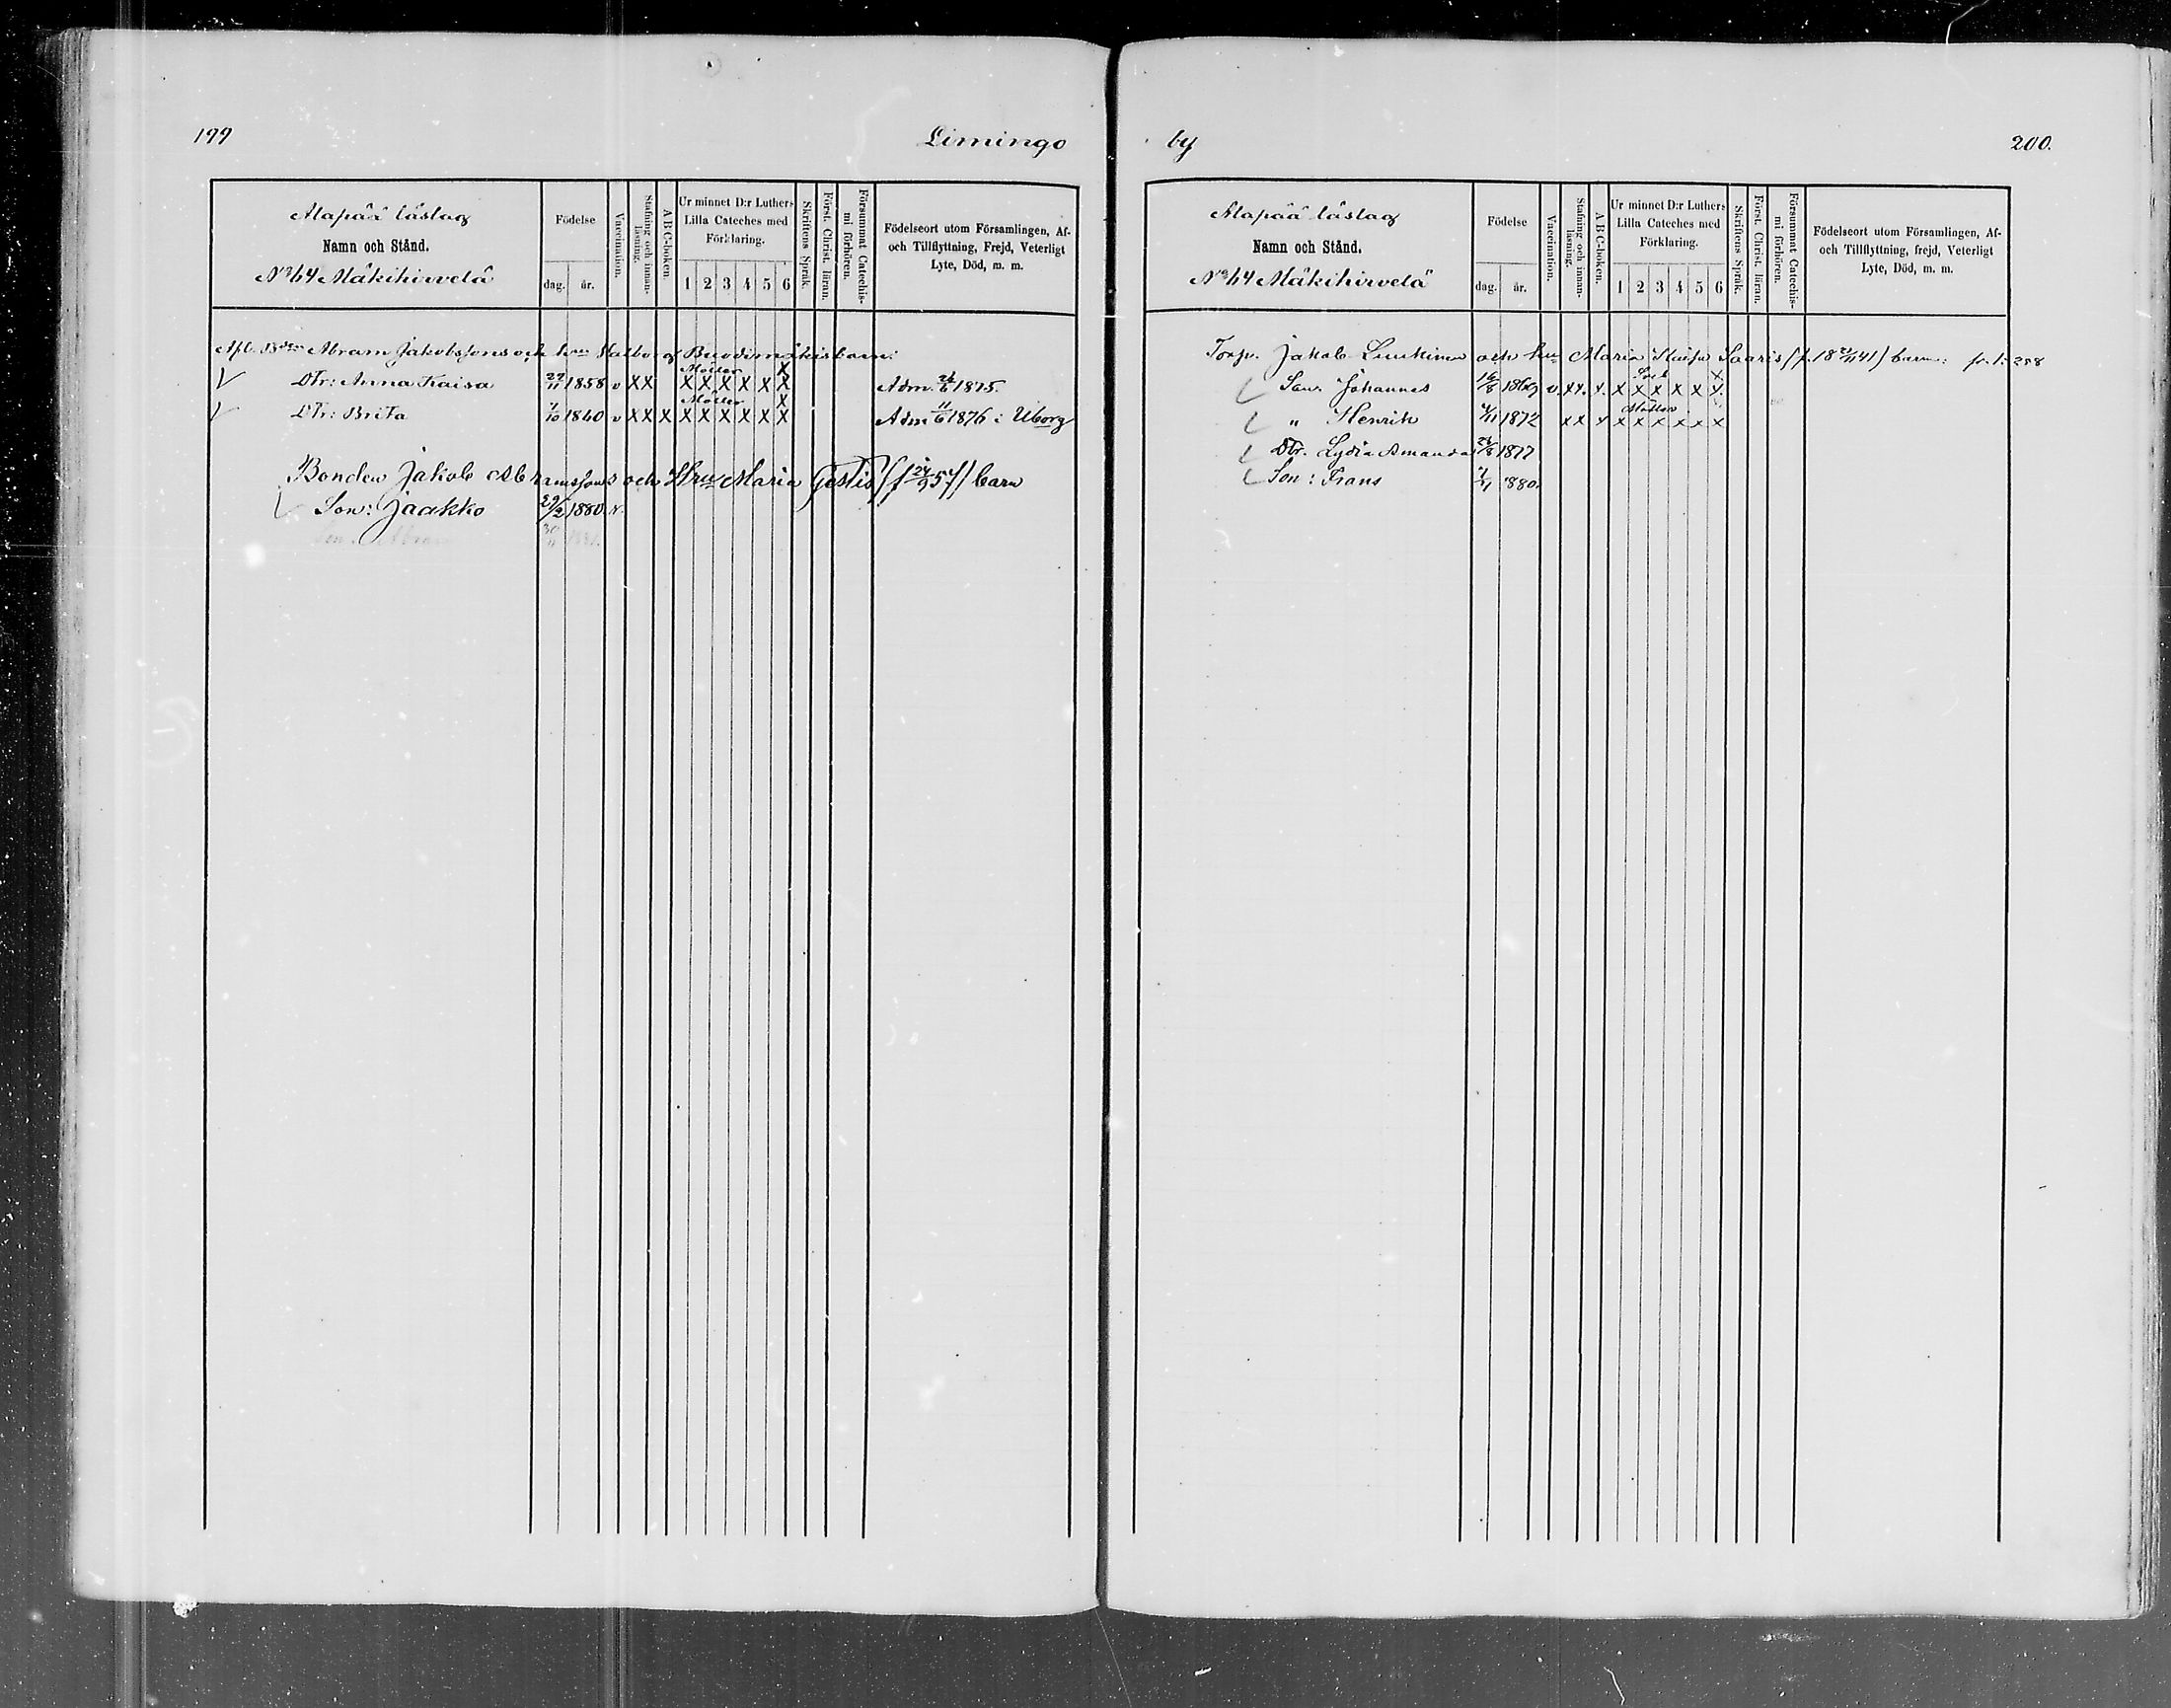 199
Limingo
Alapää läslag
Namn och Stånd.
No 64 Mäkihirvelä
Födelse
dag.
år.
Vaccination.
Stafning och innan-
läsning.
A B C-boken.
Ur minnet D:r Luthers
Lilla Cateches med
Förklaring.
1 2 3 4 5 6
Skriftens Språk.
Först. Christ. läran.
Försummat Catechis-
mi förhören.
Födelseort utom Församlingen, Af-
och Tillflyttning, Frejd, Veterligt
Lyte, Död, m. m.
Abram Jakobssons och barn:
V Dtr: Anna Kaisa 29/11 1858 v X X X X X X X X X Adm. 26/6 1875.
V Dtr: Brita 7/10 1860 v X X X X X X X X X X Adm 11/6 1876 i Uborg
Bonden Jakob Abramssons och Hru Maria (f 24/9 57) barn
Son: Jaakko 29/2 1880 v.
30/11 1881.
by
200.
Alapää läslag
Namn och Stånd.
No 64 Mäkihirvelä
Födelse
dag.
år.
Vaccination.
Stafning och innan-
läsning.
A B C-boken.
Ur minnet D:r Luthers
Lilla Cateches med
Förklaring.
1 2 3 4 5 6
Skriftens Språk.
Först. Christ. läran.
Försummat Catechis-
mi förhören.
Födelseort utom Församlingen, Af-
och Tillflyttning, frejd, Veterligt
Lyte, Död, m. m.
Torp. Jakob och hru Maria Kaisa Saaris (f. 18 41) barn: fr. l: 288
Son. Johannes 16/8 1869 v. x x. x. x x x x x x.
" Henrik 4/11 1872 x x x x x x x x x
Dtr. Lydia Amanda 26/8 1877
Son: Frans 7/1 1880.